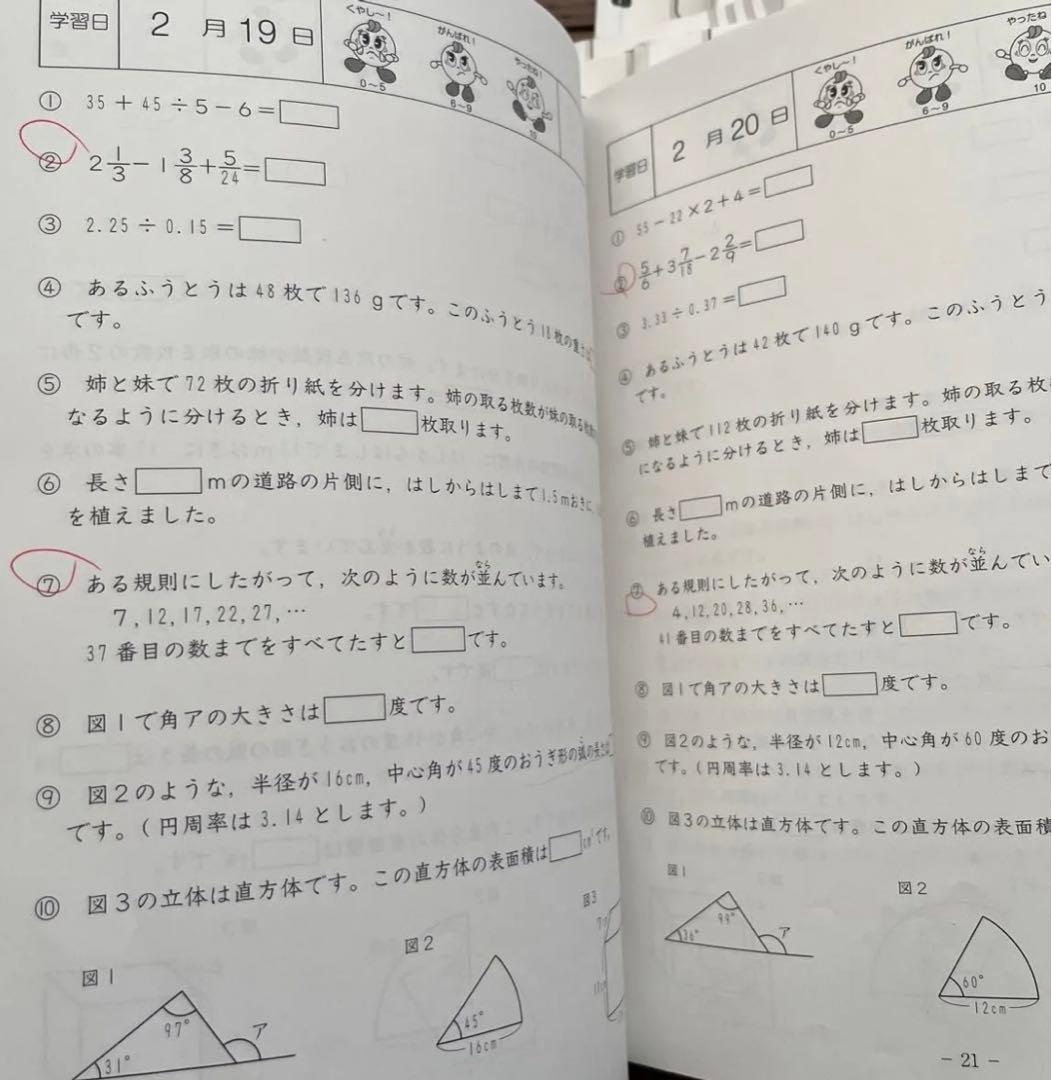 学習日 2月19日
くやし～！
0～5
がんばれ！
6～9
やったね！
10
① 35＋45÷5－6＝
② 2 1/3－1 3/8＋5/24＝
③ 2.25÷0.15＝
④ あるふうとうは48枚で136gです。このふうとう18枚の重さは
です。
⑤ 姉と妹で72枚の折り紙を分けます。姉の取る枚数が妹の取る枚数
なるように分けるとき，姉は 枚取ります。
⑥ 長さ mの道路の片側に，はしからはしまで1.5mおきに，
を植えました。
⑦ ある規則にしたがって，次のように数が並んでいます。
なら
7,12,17,22,27,…
37番目の数まですべてたすと です。
⑧ 図1で角アの大きさは 度です。
⑨ 図2のような，半径が16cm，中心角が45度のおうぎ形の弧の長さは
です。(円周率は3.14とします。)
⑩ 図3の立体は直方体です。この直方体の表面積は cm²です。
図1
97°
31°
ア
図2
45°
16cm
図3
学習日 2月20日
くやし～！
0～5
がんばれ！
6～9
やったね
10
① 55－22×2＋4＝
② 5/6＋3 7/18－2 2/9＝
③ 3.33÷0.37＝
④ あるふうとうは42枚で140gです。このふうとう
です。
⑤ 姉と妹で112枚の折り紙を分けます。姉の取る枚
になるように分けるとき，姉は 枚取ります。
⑥ 長さ mの道路の片側に，はしからはしまで
植えました。
⑦ ある規則にしたがって，次のように数が並んでい
なら
4,12,20,28,36,…
41番目の数までをすべてたすと です。
⑧ 図1で角アの大きさは 度です。
⑨ 図2のような，半径が12cm，中心角が60度のお
です。(円周率は3.14とします。)
⑩ 図3の立体は直方体です。この直方体の表面積
図1
99°
36°
ア
図2
60°
12cm
－21－